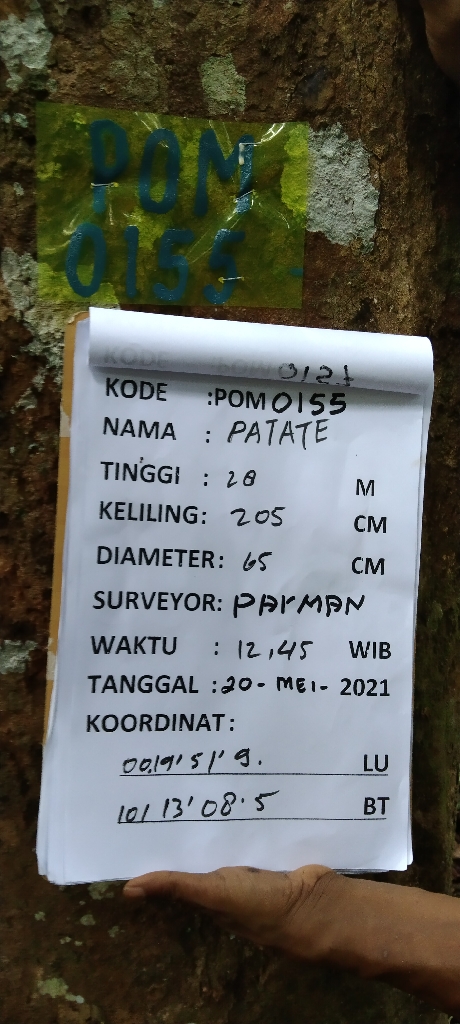 POM
0155
KODE :POM 0127
KODE :POM 0155
NAMA : PATATE
TINGGI : 28 M
KELILING: 205 CM
DIAMETER: 65 CM
SURVEYOR: PAYMAN
WAKTU : 12,45 WIB
TANGGAL :20- MEI- 2021
KOORDINAT:
00.19'51'9. LU
101 13'08.5 BT